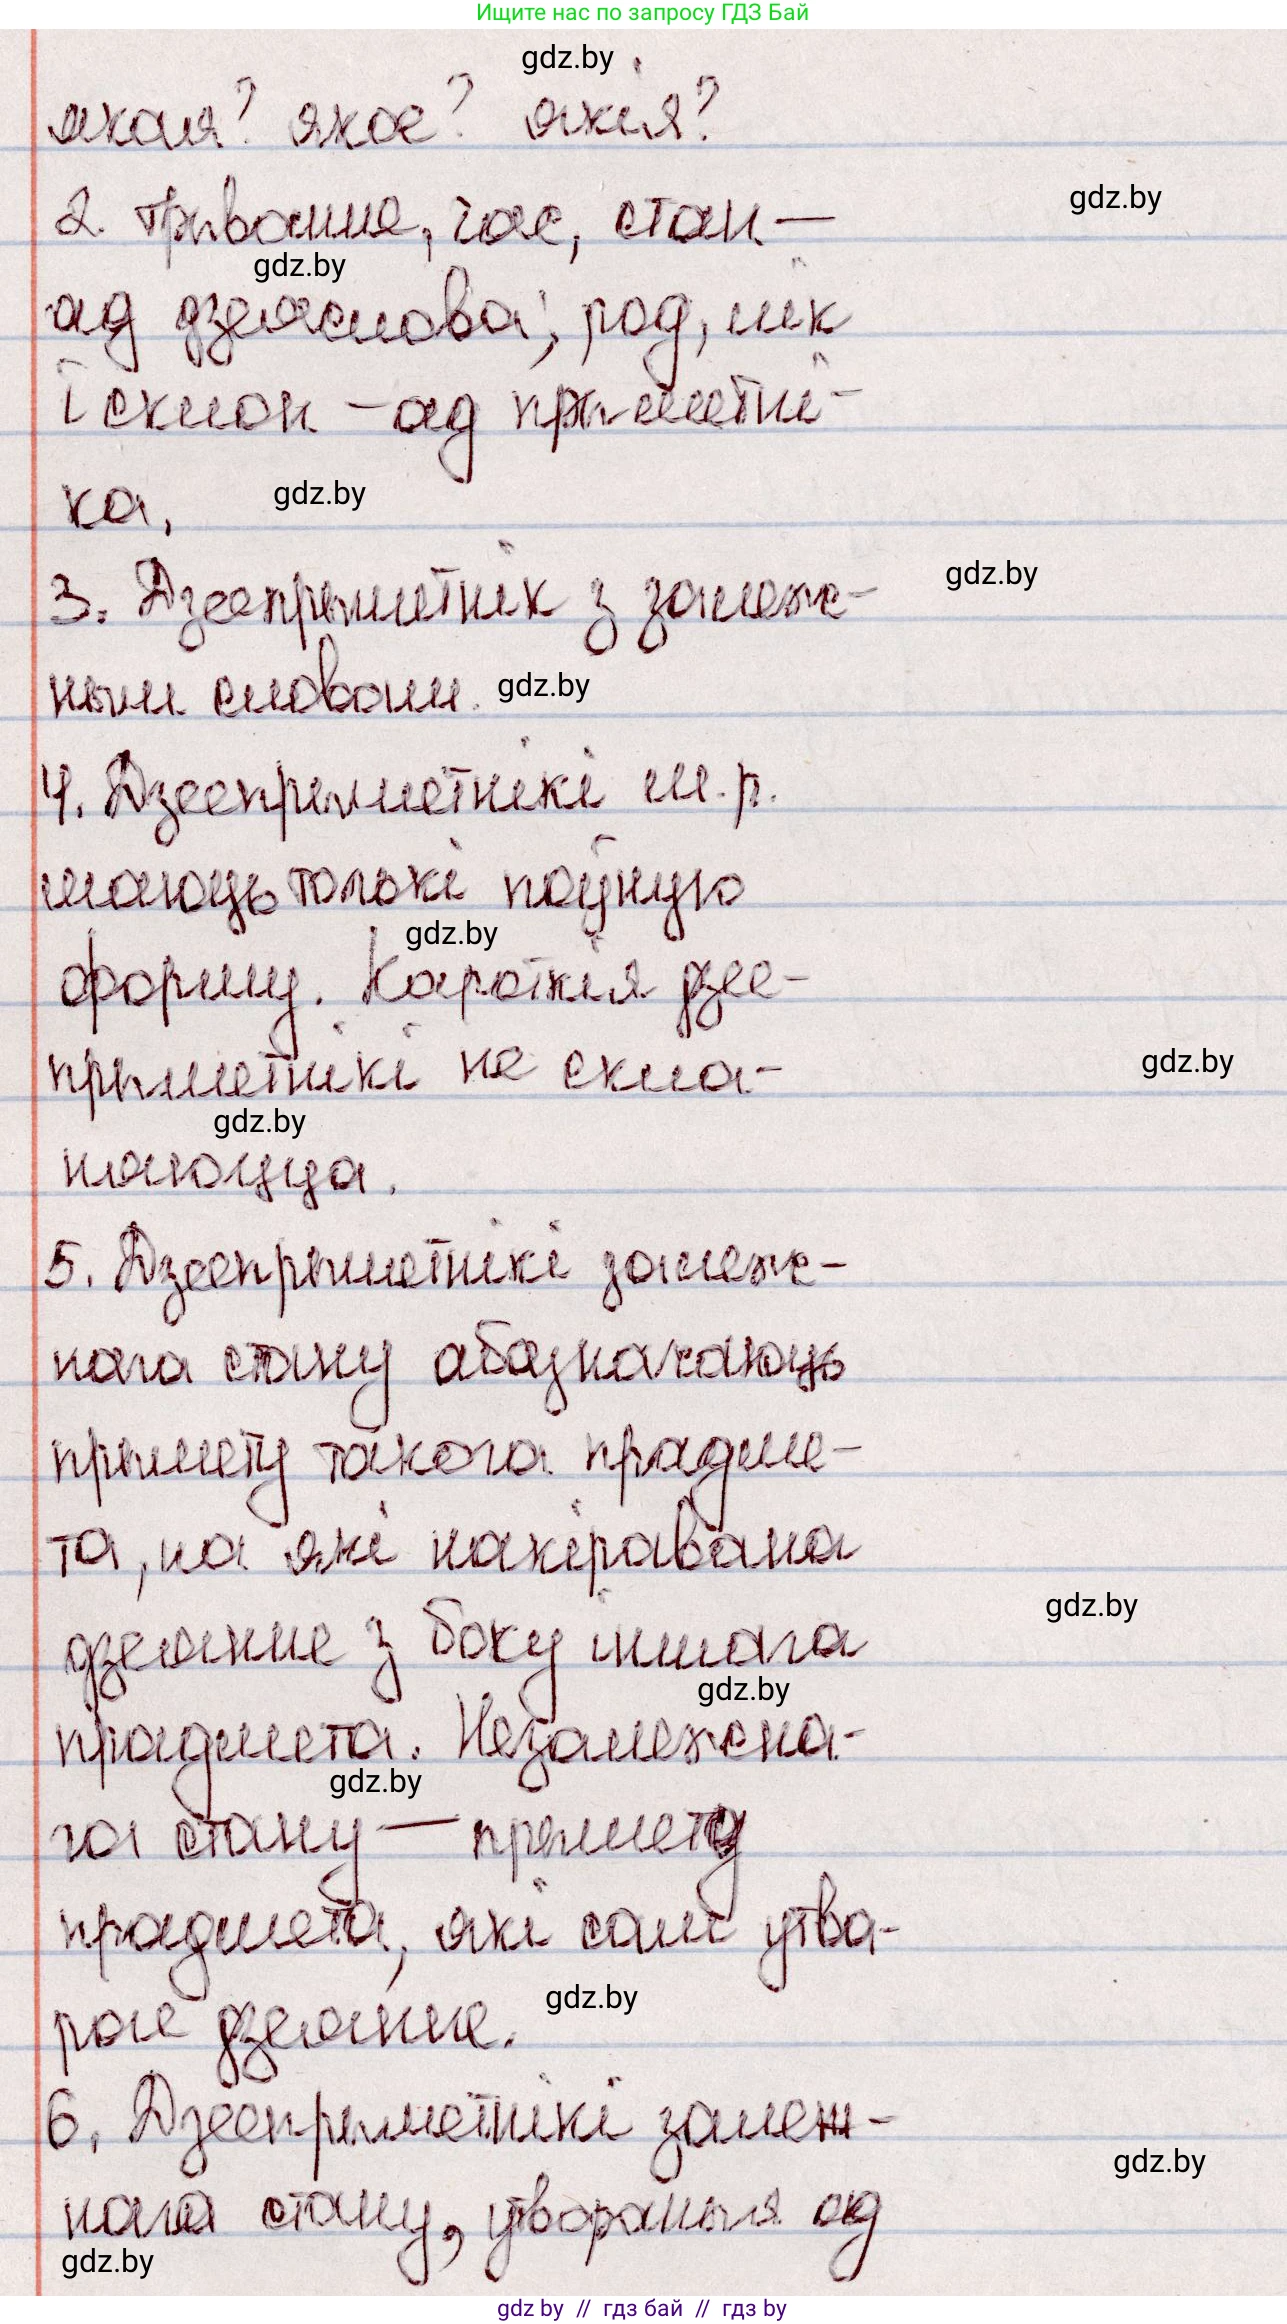 Ищите нас по запросу ГДЗ Бай
gdz.by
якая? якое? якія?
gdz.by
2. Трыванне, час, стан —
gdz.by
ад дзеяслова; род, лік
і склон – ад прыметні-
ка.
gdz.by
gdz.by
3. Дзеепрыметнік з залеж-
ным словам.
gdz.by
4. Дзеепрыметнікі цп.р.
маюць толькі поўную
gdz.by
форму. Кароткія дзее-
прыметнікі не скла-
gdz.by
gdz.by
няюцца.
5. Дзеепрыметнікі залеж-
нага стану абазначаюць
прымету такога прадме-
та, на які накіравана
gdz.by
дзеянне з боку іншага
gdz.by
прадмета. Незалежна-
gdz.by
га стану — прымету
прадмета, які сам утва-
рае дзеянне.
gdz.by
6. Дзеепрыметнікі залеж-
gdz.by
нага стану, утвораныя ад
gdz.by
gdz by // гдз бай // гдз by